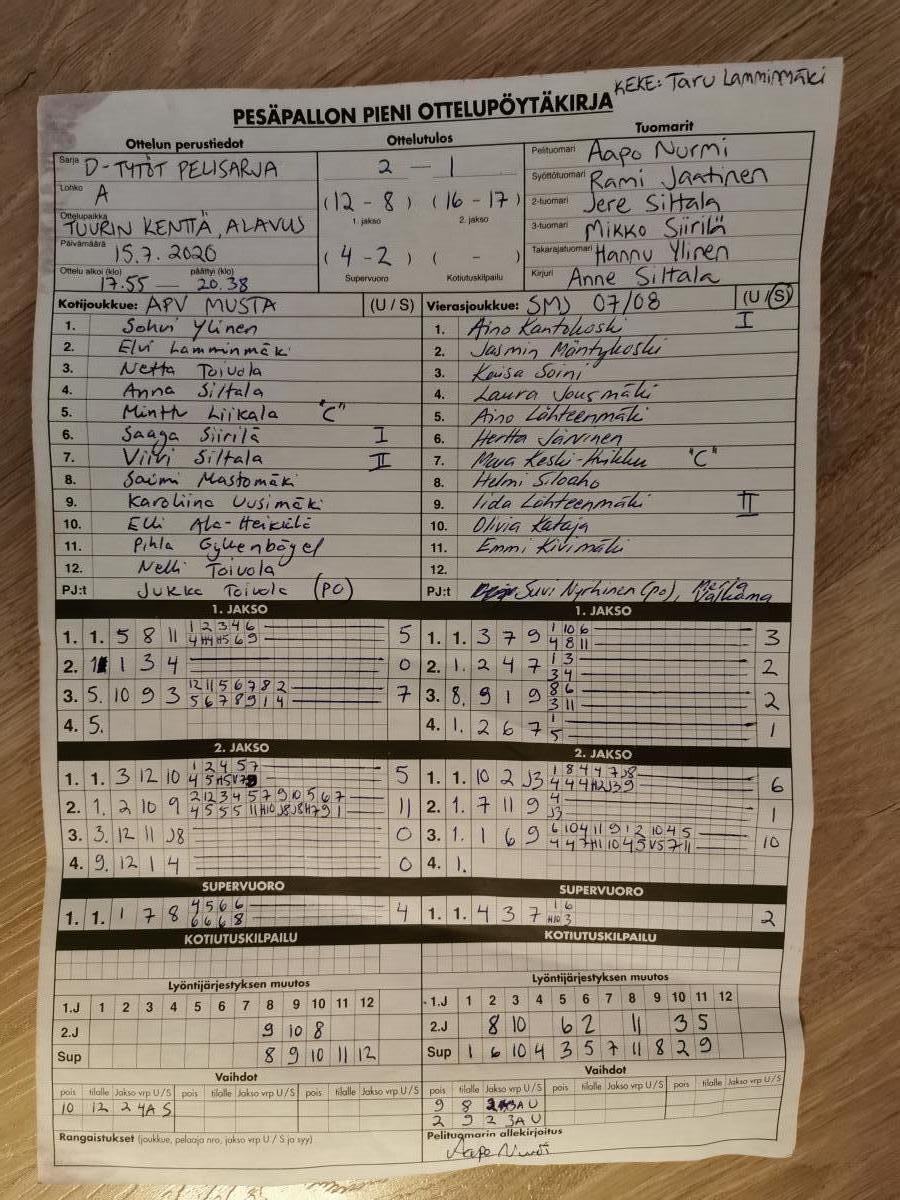 KEKE: Taru Lamminmäki
PESÄPALLON PIENI OTTELUPÖYTÄKIRJA
Ottelun perustiedot Ottelutulos Tuomarit
Sarja D-TYTÖT PELISARJA 2 — 1 Pelituomari Aapo Nurmi
Lohko A (12 - 8) (16 - 17) Syöttötuomari Rami Jaatinen
1. jakso 2. jakso 2-tuomari Jere Siltala
Ottelupaikka TUURIN KENTTÄ, ALAVUS 3-tuomari Mikko Siirilä
Päivämäärä 15.7.2020 (4 - 2) ( - ) Takarajatuomari Hannu Ylinen
Ottelu alkoi (klo) 17.55 — päättyi (klo) 20.38 Supervuoro Kotiutuskilpailu Kirjuri Anne Siltala
Kotijoukkue: APV MUSTA (U / S) Vierasjoukkue: SMJ 07/08 (U / S)
1. Sohvi Ylinen 1. Aino Kantokoski I
2. Elvi Lamminmäki 2. Jasmin Mäntykoski
3. Netta Toivola 3. Soini
4. Anna Siltala 4. Laura Jousmäki
5. Minttu Liikala "C" 5. Aino Lähteenmäki
6. Saaga Siirilä I 6. Hertta Järvinen
7. Viivi Siltala II 7. Keski-Huikku "C"
8. Saimi Mastomäki 8. Helmi Siloaho
9. Karoliina Uusimäki 9. Iida Lähteenmäki II
10. Elli Ala-Heikkilä 10. Olivia Kataja
11. Pihla 11. Emmi Kivimäki
12. Nelli Toivola 12.
PJ:t Jukka Toivola (PO) PJ:t Suvi Nyrhinen (po), Valkama
1. JAKSO 1. JAKSO
1. 1. 5 8 11 1 2 3 4 6 5 1. 1. 3 7 9 1 10 6 3
4 H4 H5 6 9 4 8 11
2. 1 3 4 0 2. 1. 2 4 7 1 3 2
3 4
3. 5. 10 9 3 12 11 5 6 7 8 2 7 3. 8. 9 1 9 8 6 2
5 6 7 8 9 1 4 3 11
4. 5. 4. 1. 2 6 7 1 1
5
2. JAKSO 2. JAKSO
1. 1. 3 12 10 1 2 4 5 7 5 1. 1. 10 2 J3 1 8 4 4 7 J8 6
4 5 4 4 4 H2 J3 9
2. 1. 2 10 9 2 12 3 4 5 7 9 10 5 6 7 11 2. 1. 7 11 9 4 1
4 5 5 5 11 H10 J8 J8 H7 9 1 J3
3. 3. 12 11 J8 0 3. 1. 1 6 9 6 10 4 11 9 1 2 10 4 5 10
4 4 7 H1 10 4 5 V5 7 11
4. 9. 12 1 4 0 4. 1.
SUPERVUORO SUPERVUORO
1. 1. 1 7 8 4 5 6 6 4 1. 1. 4 3 7 1 6 2
6 6 6 8 H10 3
KOTIUTUSKILPAILU KOTIUTUSKILPAILU
Lyöntijärjestyksen muutos Lyöntijärjestyksen muutos
1.J 1 2 3 4 5 6 7 8 9 10 11 12 1.J 1 2 3 4 5 6 7 8 9 10 11 12
2.J 9 10 8 2.J 8 10 6 2 11 3 5
Sup 8 9 10 11 12 Sup 1 6 10 4 3 5 7 11 8 2 9
Vaihdot Vaihdot
pois tilalle Jakso vrp U / S pois tilalle Jakso vrp U / S pois tilalle Jakso vrp U / S pois tilalle Jakso vrp U / S pois tilalle Jakso vrp U / S pois tilalle Jakso vrp U / S
10 12 2 4A S 9 8 3A U
2 9 2 3A U
Rangaistukset (joukkue, pelaaja nro, jakso vrp U / S ja syy) Pelituomarin allekirjoitus
Aapo Nurmi